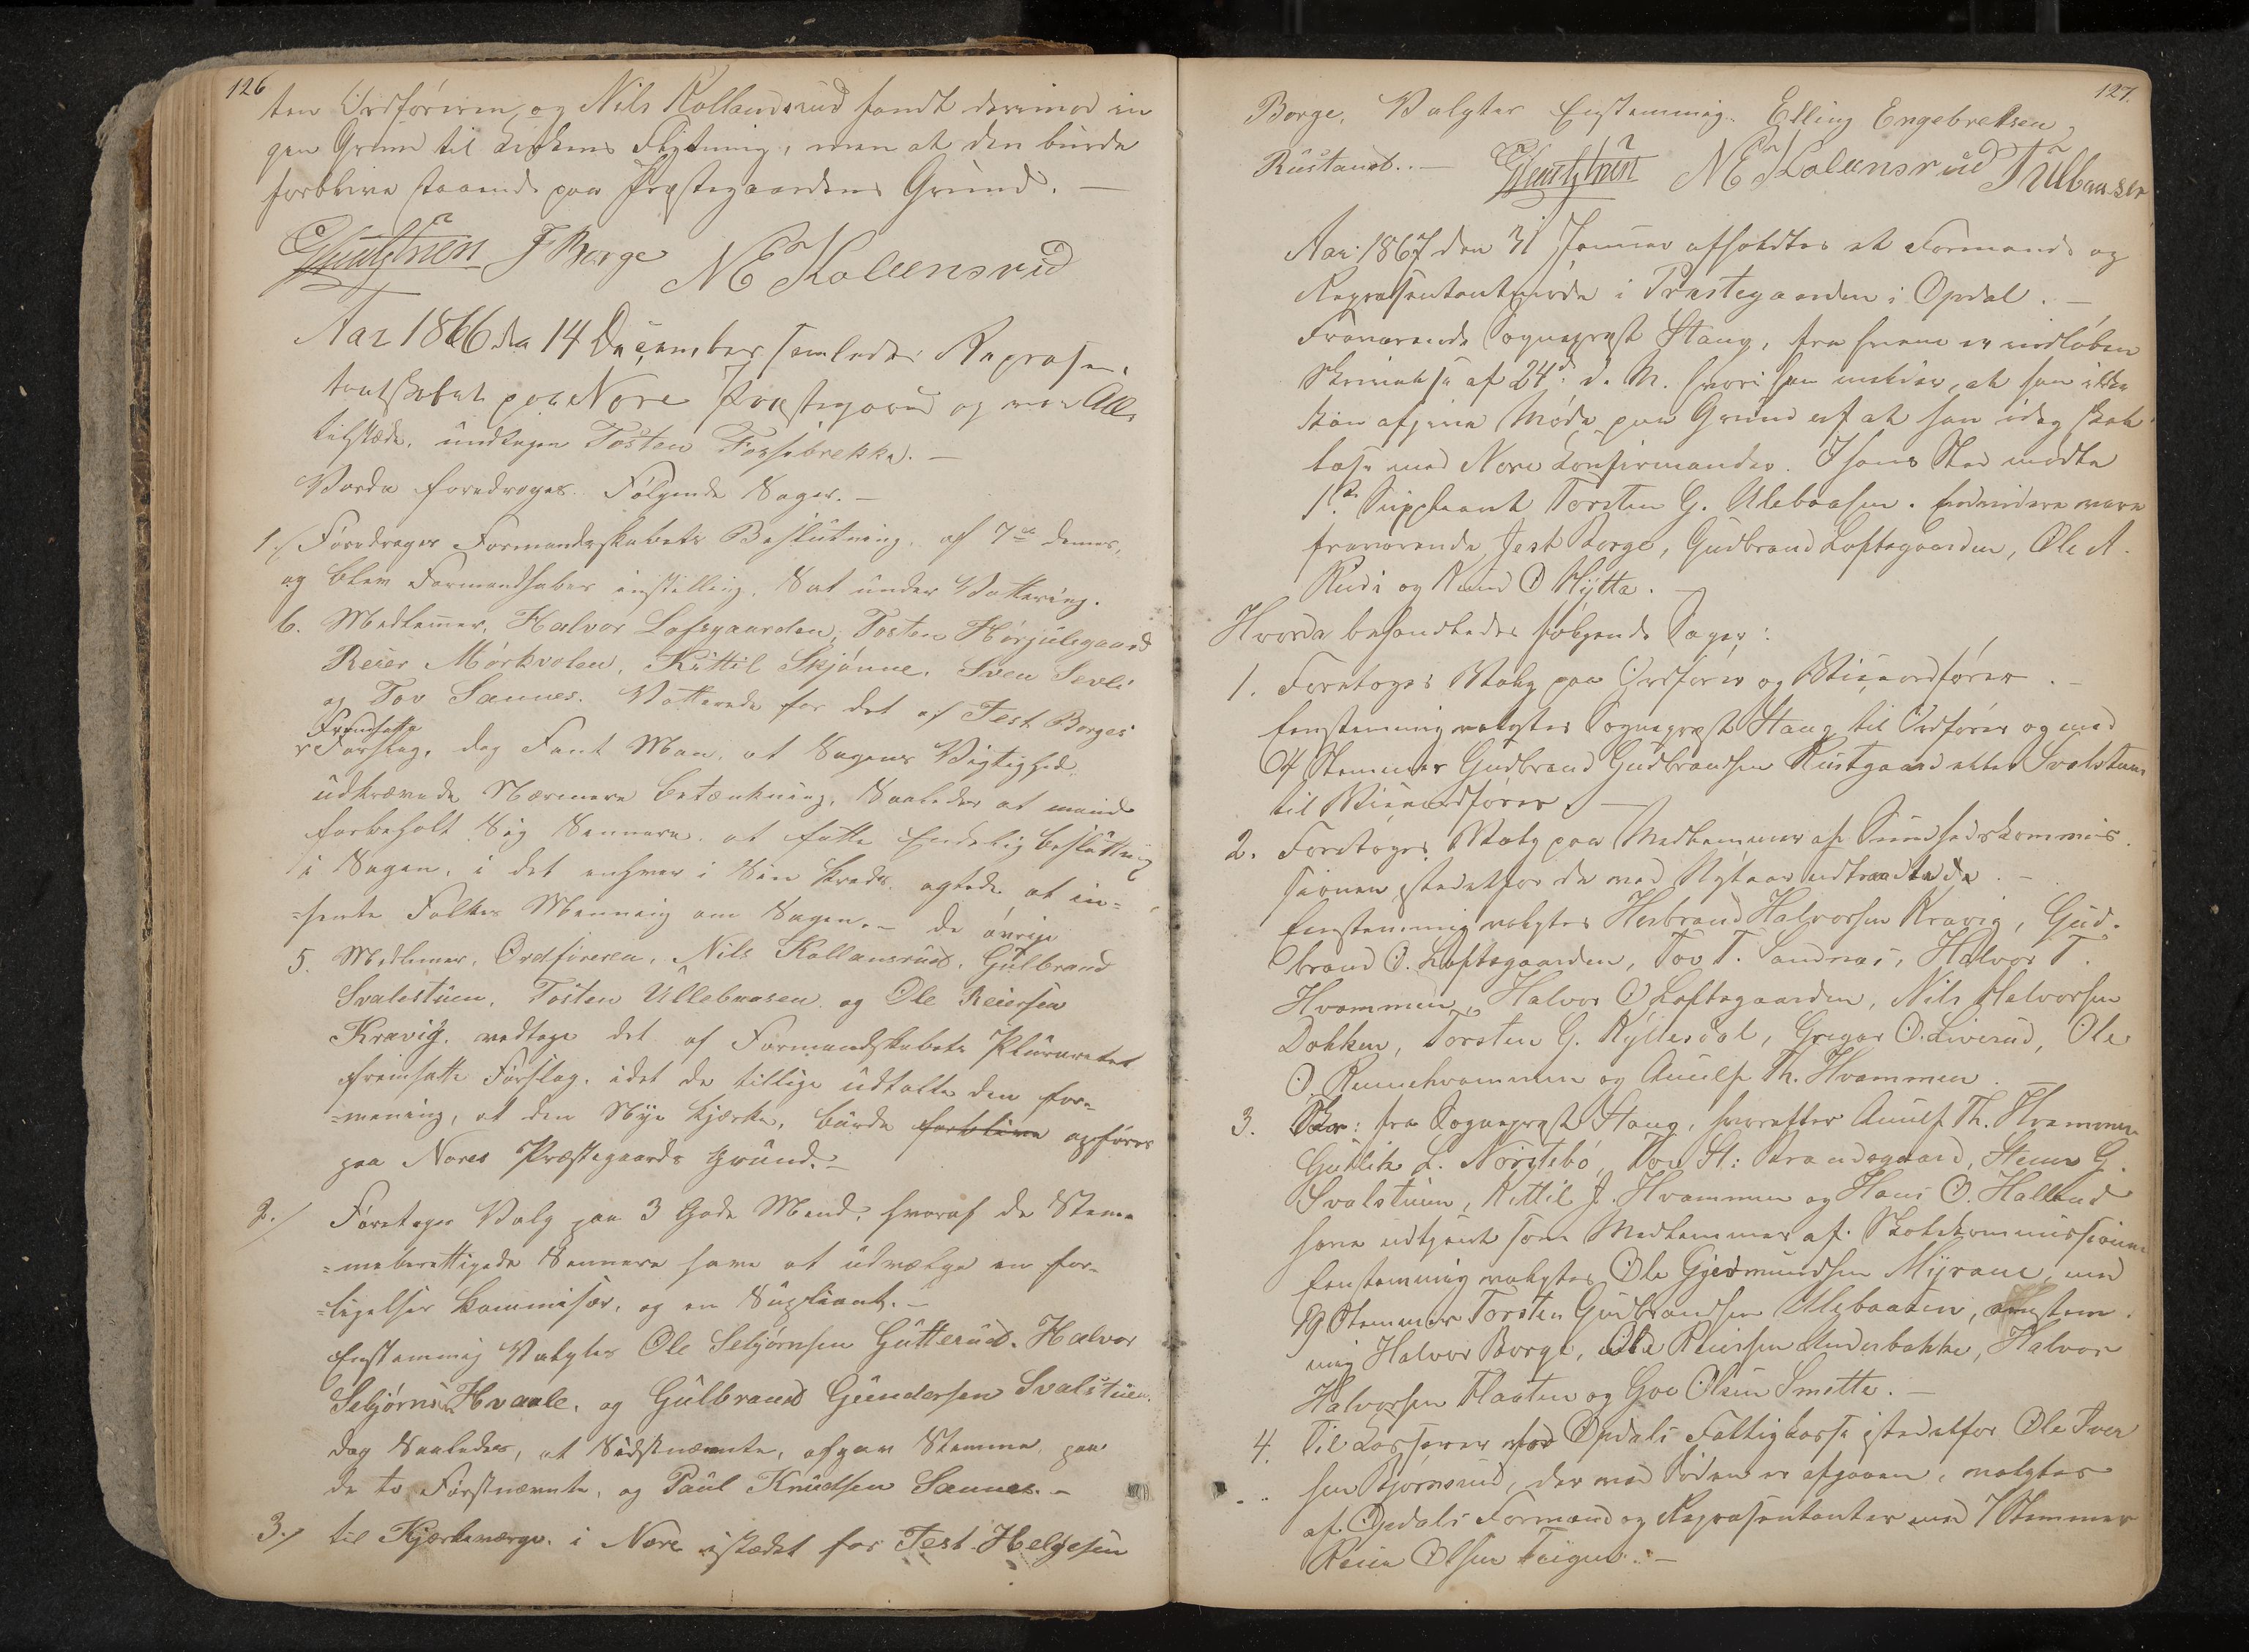 126
ten Ordføreren og Nils Kollandsrud fandt derimod in
gen Grund til Kirkens Flytning, men at den burde
forblive staaende paa Præstegaardens Grund. —
F Borge NE Kolleensrud
Aar 1866 den 14 December samledes Repræsen,
tantskabet paa Nore Præstegaard og var Alle
tilstæde, undtagen Tosten Fossebrekke. —
Vorda foredroges Følgende Sager. —
1./ Foredroges Formandskabets Beslutning af 7de dennes,
og blev Formandskabes instilling, Sat under Vottering.
6. Medlemer, Halvor Lofsgaarden, Tosten Hørjulsgaard
Reier Mørkvolden, Kittil Skjønne, Sven Sevli
og Tov Sannes. Votterede for det af Jest Borges
Fremsatte
Forslag, dog Fant Man, at Sagens Vigtighed
udkrævede Nærmere Betænkning, Saaledes at man
forbeholt Sig Sennere at fatte Endelig beslutning
i Sagen, i det enhver i Sin Kreds agtede at in=
=hente Folkes Menning om Sagen. — de øvrige
5. Medlemer, Ordføreren, Nils Kollansrud, Gulbrand
Svalestuen, Tosten Ullebaasen og Ole Reiersen
Kravig. vedtoge det af Formandskabets Pluraritet
fremsatte Forslag, idet de tillige udtalte den for=
=mening, at den Nye Kjærke, burde forblive opføres
paa Nores Præstegaards Grund. —
2./ Foretoges Valg paa 3 Gode Mænd, hvoraf de Stem=
=meberettigede Sennere have at udvælge en for=
=ligelses Kommisær, og en Supliant. —
Enstemmig Valgtes Ole Sebjørnsen Gutterud. Halvor
Sebjørns: Hvaale, og Gulbrand Gundersen Svalstuen.
dog Saaledes, at Sidstnævnte, afgav Stemme paa
de to Førstnævnte, og Paul Knudsen Sannes. —
3./ til Kjærkeværge i Nore istædet for Jest Helgesen
127.
Borge, Valgtes Enstemmig. Elling Engebretsen
Rustand. — NE Kolleensrud TUlbaasen
Aar 1867 den 31 Januar afholdtes et Formands og
Repræsentantmøde i Præstegaarden i Opdal. —
Fraværende Sognepræst Stang, fra hvem er indløben
Skrivelse af 24de d. M. hvori han melder, at han ikke
kan afgive Møde paa Grund af at han idag skal
læse med Nore Konfirmander. I hans Sted mødte
1ste Suppleant Torsten G. Ulebaasen. Endvidere vare
fraværende Jest Borge, Gudbrand Loftsgaarden, Ole A.
Rudi og Knud O Hytta. —
Hvorda behandledes følgende Sager:
1. Foretoges Valg paa Ordfører og Viceordfører. —
Eenstemmig valgtes Sognepræst Stang til Ordfører og med
Stemmer Gudbrand Gudbrandsen Rustgaard eller Svalstuen
til Viceordfører. —
2. Foretoges Valg paa Medlemmer af Sundhedskommis
sionen istedetfor de med Nytaar udtraadte. —
Eenstemmig valgtes Herbrand Halvorsen Kravig, Gud-
brand O. Loftsgaarden, Tov T. Sandnæs, Halvor T.
Hvammen, Halvor O Loftsgaarden, Nils Halvorsen
Dokken, Torsten G. Kyllesdal, Gregar O. Liverud, Ole
O. Runehvammen og Anulf Th. Hvammen. —
3. Skr: fra Sognepræst Stang, hvorefter Anulf Th. Hvammen
Gullik L. Nørstebø, Tov St: Brandsgaard, Steen G.
Svalstuen, Kittil J. Hvammen og Hans O. Halland
have udtjent som Medlemmer af Skolekommissionen
Eenstemmig valgtes Ole Gjermundsen Myrane, med
19 Stemmer Torsten Gudbrandsen Ulebaasen, eenstem
mig Halvor Borge, Ole Reiersen Underbakke, Halvor
Halvorsen Flaaten og Goe Olsen Smette. —
4. Til Kasserer ved Opdals Fattigkasse istedetfor Ole Iver
sen Bjørnsrud, der ved Døden er afgaaen, valgtes
af Opdals Formænd og Repræsentanter med 7 Stemmer
Reier Olsen Teigen. —